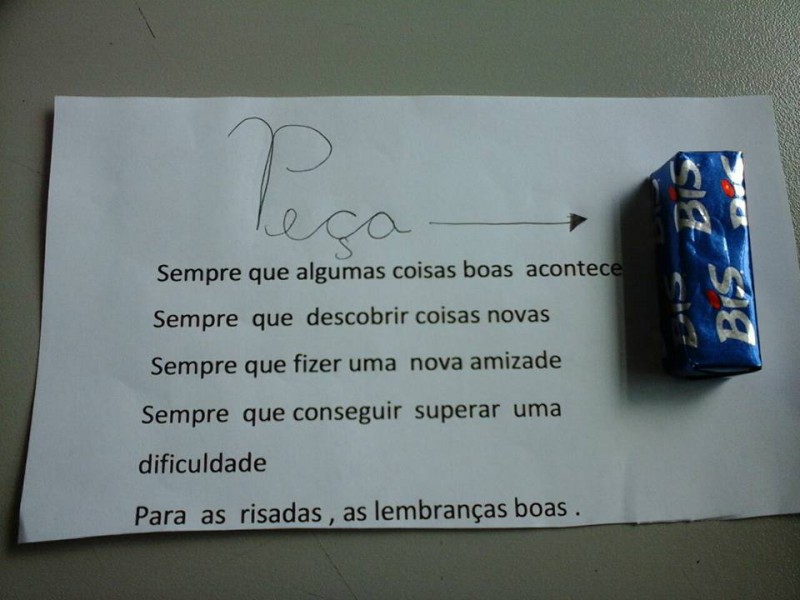 Peça
Sempre que algumas coisas boas acontece
Sempre que descobrir coisas novas
Sempre que fizer uma nova amizade
Sempre que conseguir superar uma
dificuldade
Para as risadas , as lembranças boas .
BIS
BIS
BIS
BIS
BIS